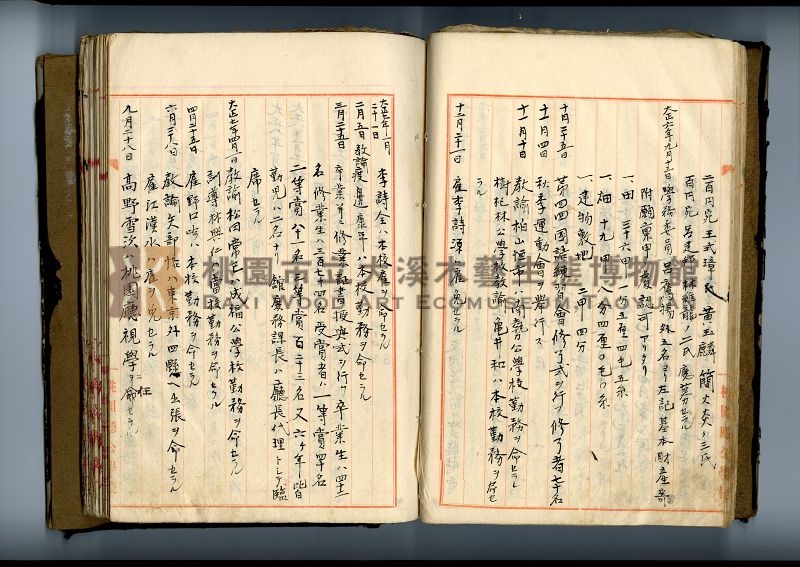 二百円宛王式璋氏 黄玉麟 簡火炎ノ三氏
百円宛呂建邦 林維龍ノ二氏應募セラル
大正六年九月十三日學務委員呂鷹揚外五名ヨリ左記基本財産寄
附願稟申ノ處認可アリタリ
一、田 三十六甲一分五厘四毛五糸
一、畑 十九甲 八分四厘〇毛八糸
一、建物敷地 二甲四分
十月二十五日 第四回國語練習會修了式ヲ行フ修了者七十名
十一月四日 秋季運動會ヲ挙行ス
十一月十日 教諭柏山恒幸ハ南勢公學校勤務ヲ命セラレ
樹杞林公學校教諭亀井和ハ本校勤務ヲ命セ
ラル
十二月二十一日 雇李詩源ハ雇ヲ免セラル
大正七年一月
二十一日 李詩全ハ本校雇ヲ命セラル
二月五日 教諭渡邊康年ハ本校勤務ヲ命セラル
三月二十五日 卒業並ニ修業証書授與式ヲ行フ卒業生ハ四十二
名修業生ハ三百七十四名受賞者ハ一等賞四十名
二等賞八十一名三等賞百二十三名又六ケ年皆
勤児ハ二名ナリ 館庶務課長ハ廳長代理トシテ臨
席セラル
大正七年四月一日 教諭松田常己ハ成福公學校勤務ヲ命セラル
訓導林興仁ハ 公學校勤務ヲ命セラル
四月二十五日 雇野口 ハ本校勤務ヲ命セラル
六月二十八日 教諭矢部 ハ東京外四縣ヘ出張ヲ命セラル
雇江漢水ハ雇ヲ免セラル
九月二十八日 高野雪次ハ桃園廳視學ニ任命セラル
桃園市立大溪木藝生態博物館
DAXI WOOD ART ECOMUSEUM, TAOYUAN